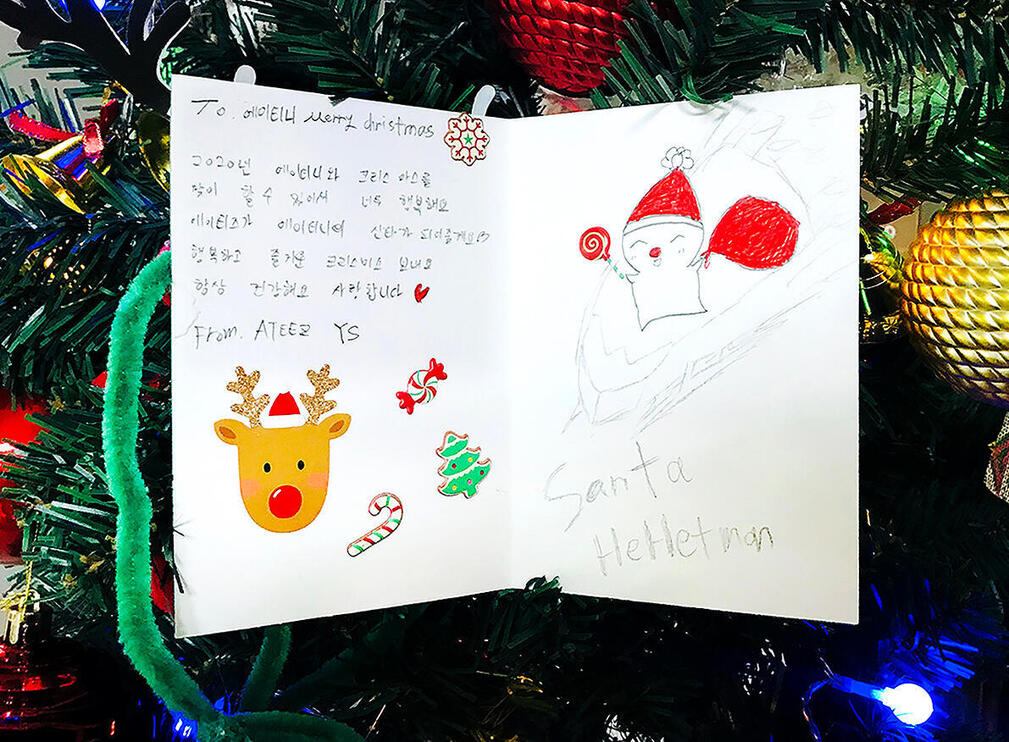 To. 에이티니 Merry christmas
2020년 에이티니와 크리스마스를
같이 할 수 있어서 너무 행복해요
에이티즈가 에이티니의 산타가 되어줄게요♡
행복하고 즐거운 크리스마스 보내요
항상 건강해요 사랑합니다 ♥
From. ATEEZ YS
Santa
HeHetmon